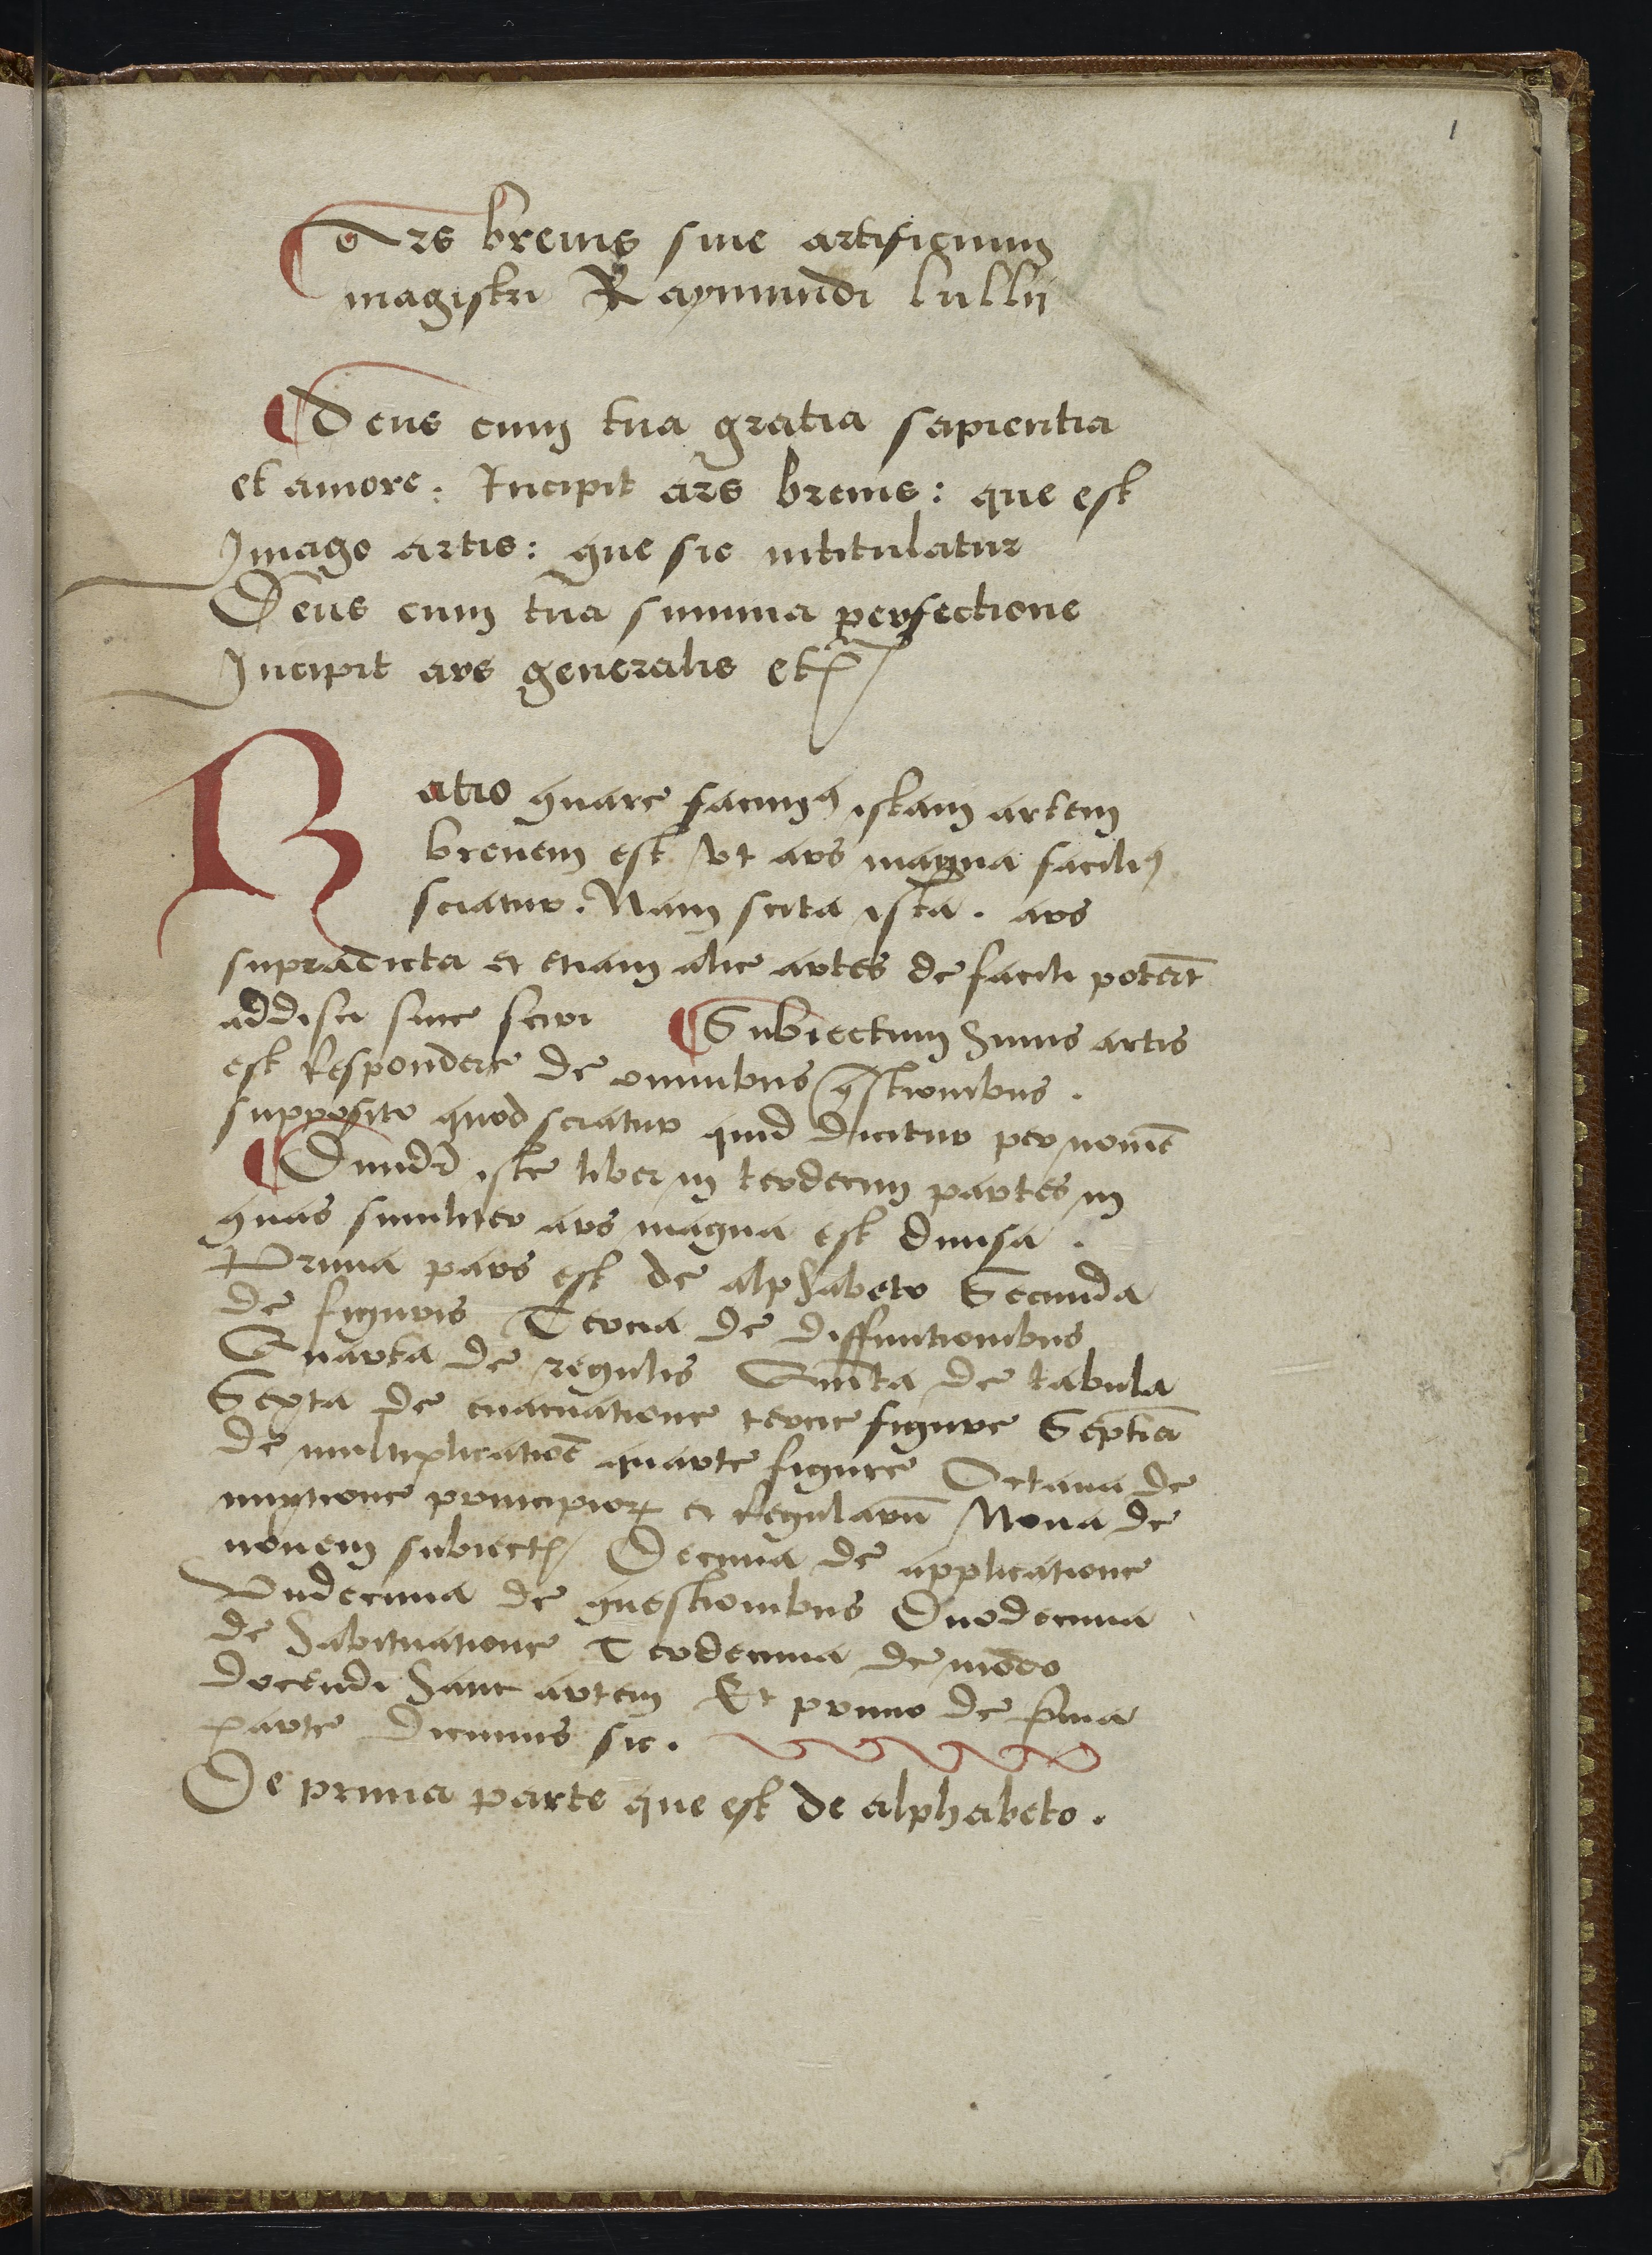 1
Ars breuis siue artificium
magistri Raymundi lullij
Deus cum tua gratia sapientia
et amore: Incipit ars breuis: que est
Imago artis: que sic intitulatur
Deus cum tua summa perfectione
Incipit ars generalis etc̃
Ratio quare facimꝰ istam artem
breuem est vt ars magna faciliꝰ
sciatur. Nam scita ista. ars
supradicta et etiam alie artes de facili poterũt
addisci siue sciri ¶ Subiectum huius artis
est respondere de omnibus q̃stionibus.
supposito quod sciatur quid dicitur per nomẽ
¶ Diuidit̃ iste liber in terdecim partes in
quas similiter ars magna est diuisa.
Prima pars est de alphabeto Secunda
de figuris Tercia de diffinitionibus
Quarta de regulis Quĩta de tabula
Sexta de euacuatione tercie figure Septĩa
de multiplicatiõe quarte figure Octaua de
mixtione principioꝝ et regularũ Nona de
nouem subiectꝭ Decima de applicatione
Vndecima de questionibus Duodecima
de habituatione Terdecima de modo
docendi hanc artem Et primo de p̃ma
parte dicimus sic.
De prima parte que est de alphabeto.